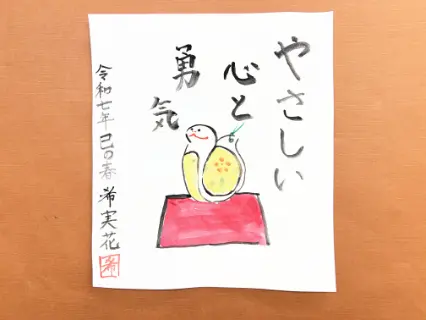 やさしい
心と
勇
気
令和七年 己の春 希実花
希